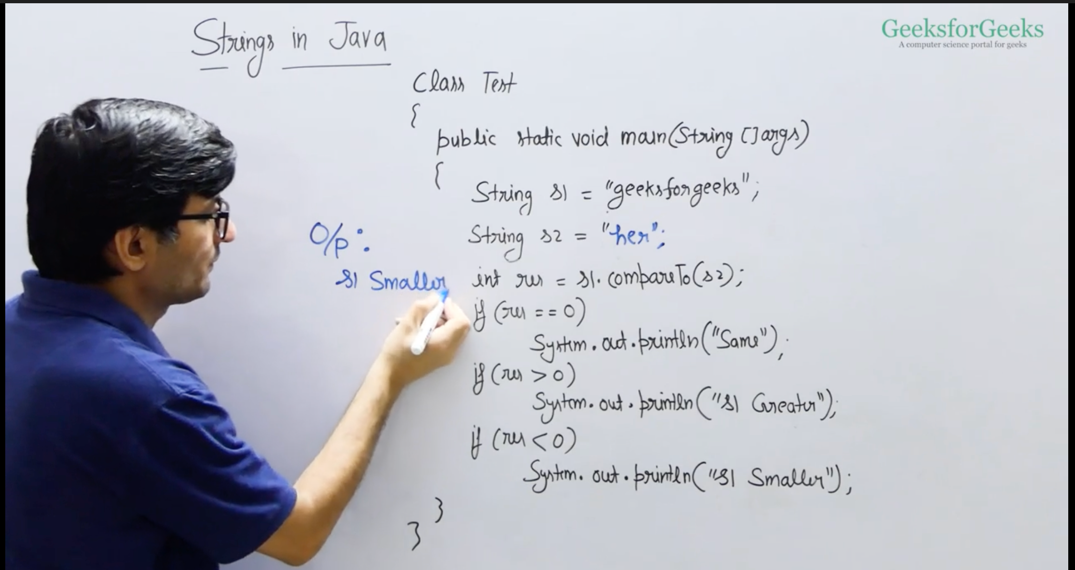 Strings in Java
GeeksforGeeks
A computer science portal for geeks
Class Test
{
public static void main(String []args)
{
String s1 = "geeksforgeeks";
String s2 = "her";
int res = s1.compareTo(s2);
if (res == 0)
System.out.println("Same");
if (res > 0)
System.out.println("S1 Greater");
if (res < 0)
System.out.println("S1 Smaller");
}
}
O/p:
S1 Smaller